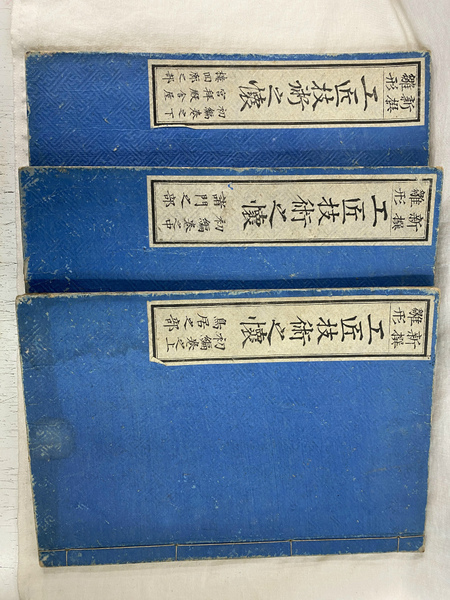 新撰
雛形
工匠技術之懐
初編巻之下
宮拝殿舎
楼回廊之部
新撰
雛形
工匠技術之懐
初編巻之中
諸門之部
新撰
雛形
工匠技術之懐
初編巻之上
鳥居之部